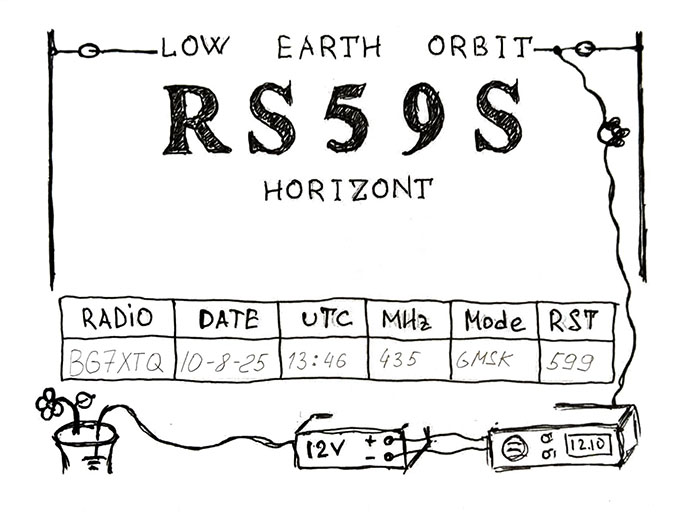 LOW EARTH ORBIT
RS59S
HORIZONT
RADiO DATE UTC MHz Mode RST
BG7XTQ 10-8-25 13:46 435 GMSK 599
12V + -
12.10